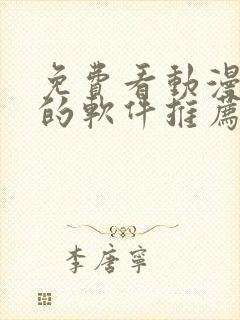 免費看動漫
的軟件推薦
李唐寧